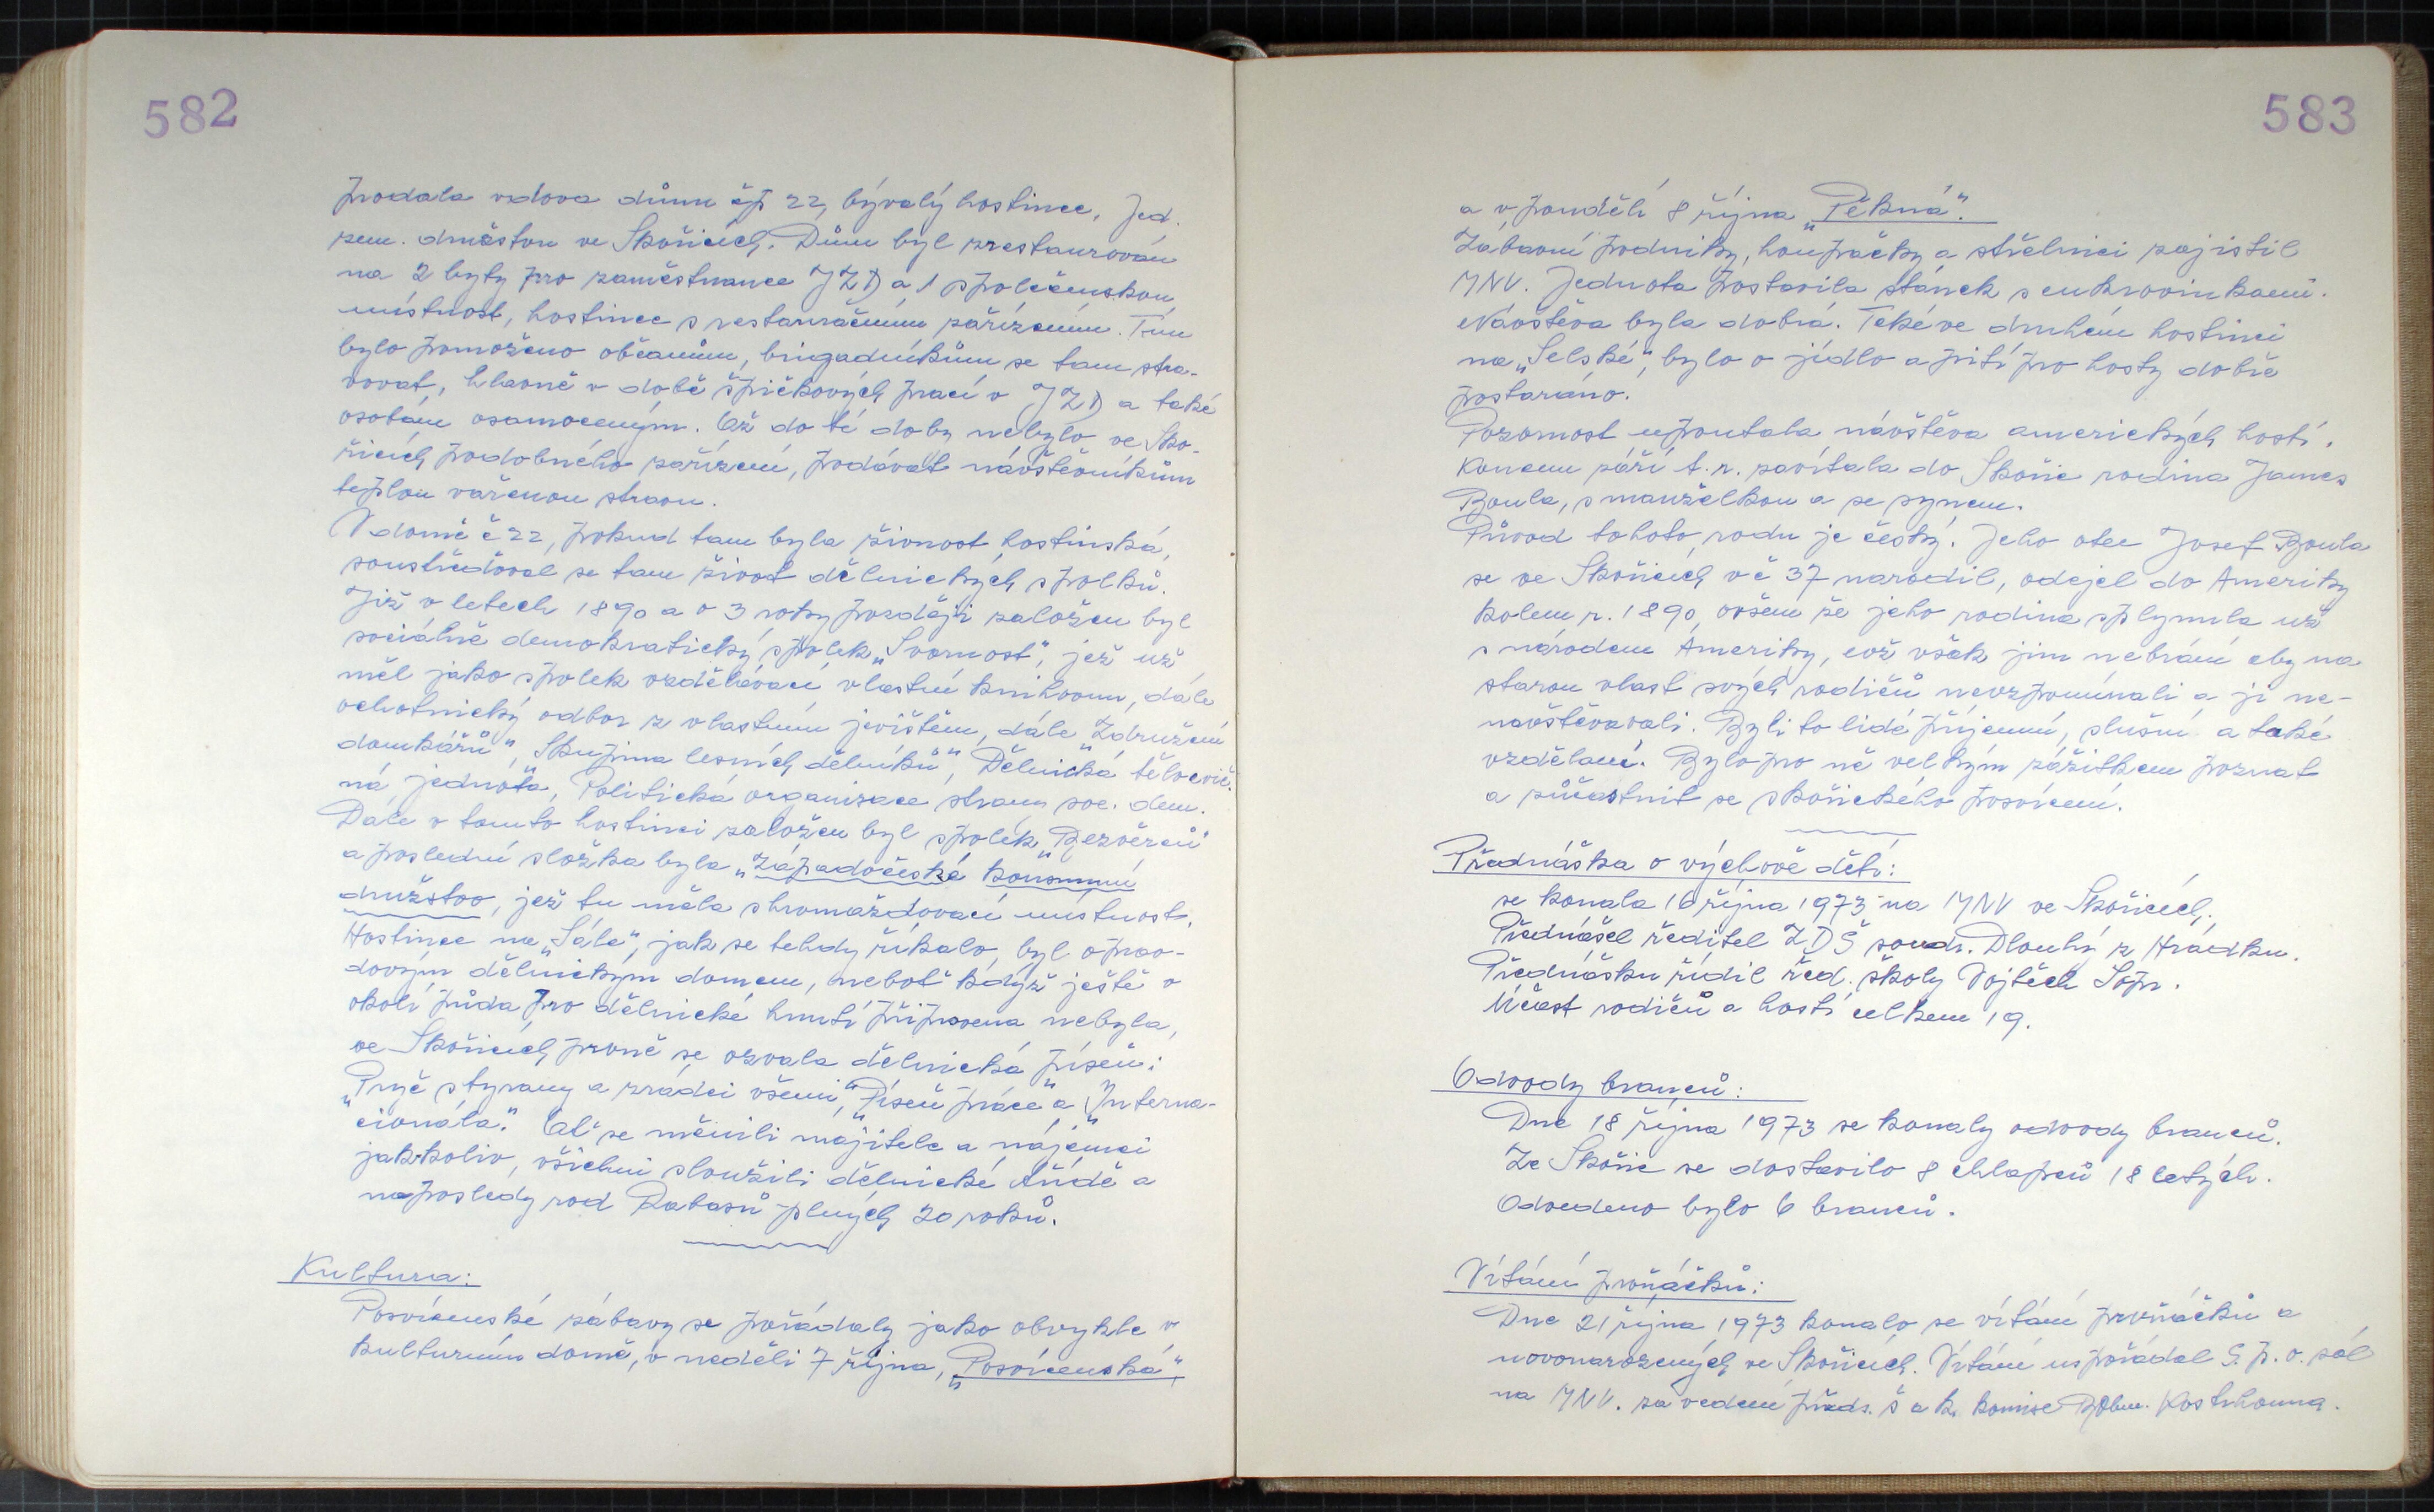 582
prodala vdova dům čp 22, bývalý hostinec, Jed.
zem. družstvu ve Skořicích. Dům byl zrestaurován
na 2 byty pro zaměstnance JZD a 1 společenskou
místnost, hostinec s restauračním zařízením. Tím
bylo pomoženo občanům, brigadníkům se tam stra-
vovat, hlavně v době špičkových prací v JZD a také
osobám osamoceným. Až do té doby nebylo ve Sko-
řicích podobného zařízení, podávat návštěvníkům
teplou vařenou stravu.
V domě č 22, pokud tam byla živnost hostinská,
soustřeďoval se tam život dělnických spolků.
Již v letech 1890 a o 3 roky později založen byl
sociálně demokratický spolek „Svornost“, jež už
měl jako spolek vzdělávací vlastní knihovnu, dále
ochotnický odbor z vlastním jevištěm, dále „Združení
domkářů“, „Skupina lesních dělníků“, „Dělnická tělocvič-
ná jednota“, Politická organizace strany soc. dem.
Dále v tomto hostinci založen byl spolek „Bezvěrců“
a poslední složka byla „Západočeské konsumní
družstvo, jež tu měla shromažďovací místnost.
Hostinec na „Sále“, jak se tehdy říkalo, byl oprav-
dovým dělnickým domem, neboť když ještě v
okolí půda pro dělnické hnutí připravena nebyla,
ve Skořicích prvně se ozvala dělnická píseň:
„Pryč s tyrany a zrádci všemi“, „Píseň práce“ a „Interna-
cionála.“ Ať se měnili majitele a nájemci
jakkoliv, všichni sloužili dělnické třídě a
naposledy rod Rabasů plných 20 roků.
Kultura:
Posvícenské zábavy se pořádaly jako obvykle v
kulturním domě, v neděli 7 října, „Posvícenská“,
583
a v pondělí 8 října „Pěkná“.
Zábavní podniky, houpačky a střelnici zajistil
MNV. Jednota postavila stánek s cukrovinkami.
Návštěva byla dobrá. Také ve druhém hostinci
na „Selské“, bylo o jídlo a pití pro hosty dobře
postaráno.
Pozornost upoutala návštěva amerických hostí.
Koncem září t.r. zavítala do Skořic rodina James
Boula, s manželkou a se synem.
Původ tohoto rodu je český. Jeho otec Josef Boula
se ve Skořicích v č 37 narodil, odejel do Ameriky
kolem r. 1890, ovšem že jeho rodina splynula už
s národem Ameriky, což však jim nebrání aby na
starou vlast svých rodičů nevzpomínali a ji ne-
navštěvavali. Byli to lidé příjemní, slušní a také
vzdělaní. Bylo pro ně velkým zážitkem poznat
a zůčastnit se skořického posvícení.
Přednáška o výchově dětí:
se konala 16 října 1973 na MNV ve Skořicích.
Přednášel ředitel ZDŠ soudr. Dlouhý z Hrádku.
Přednášku řídil řed. školy Vojtěch Šópr.
Účast rodičů a hostí celkem 19.
Odvody branců:
Dne 18 října 1973 se konaly odvody branců.
Ze Skořic se dostavilo 8 chlapců 18 letých.
Odvedeno bylo 6 branců.
Vítání prvňáčků:
Dne 21 října 1973 konalo se vítání prvňáčků a
novonarozených ve Skořicích. Vítání uspořádal S.p.o. zál
na MNV. za vedení předs. š a k. komise Kostrhouna.